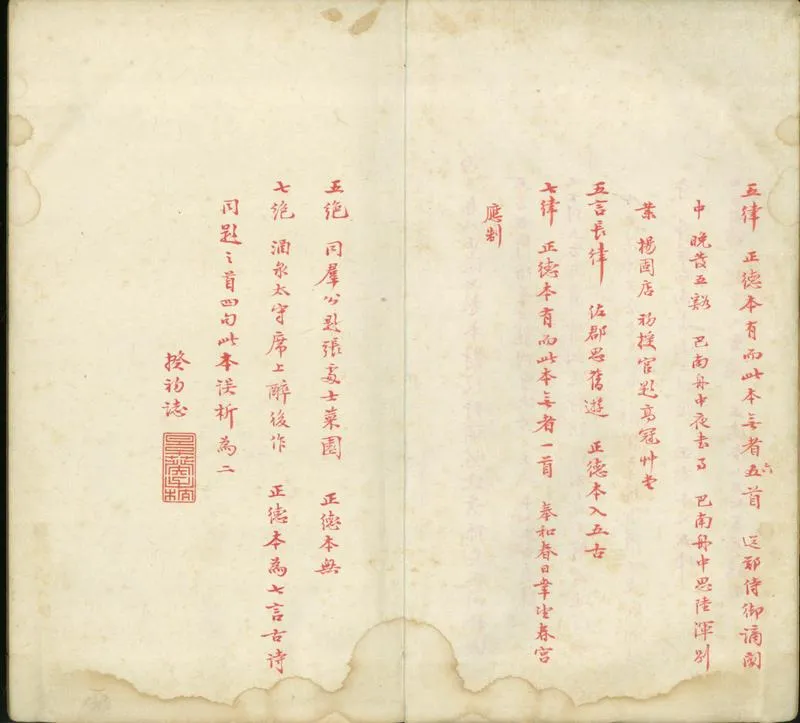 五律 正德本有而此本無者五六首 送鄭侍御謫閩
中 晚發五谿 巴南舟中夜書事 巴南舟中思陸渾別
業 楊固店 初授官題高冠艸堂
五言長律 佐郡思舊遊 正德本入五古
七律 正德本有而此本無者一首 奉和春日幸望春宮
應制
五絕 同羣公題張處士菜園 正德本無
七絕 酒泉太守席上醉後作 正德本為七言古詩
同題之首四句此本誤析為二
揆初誌